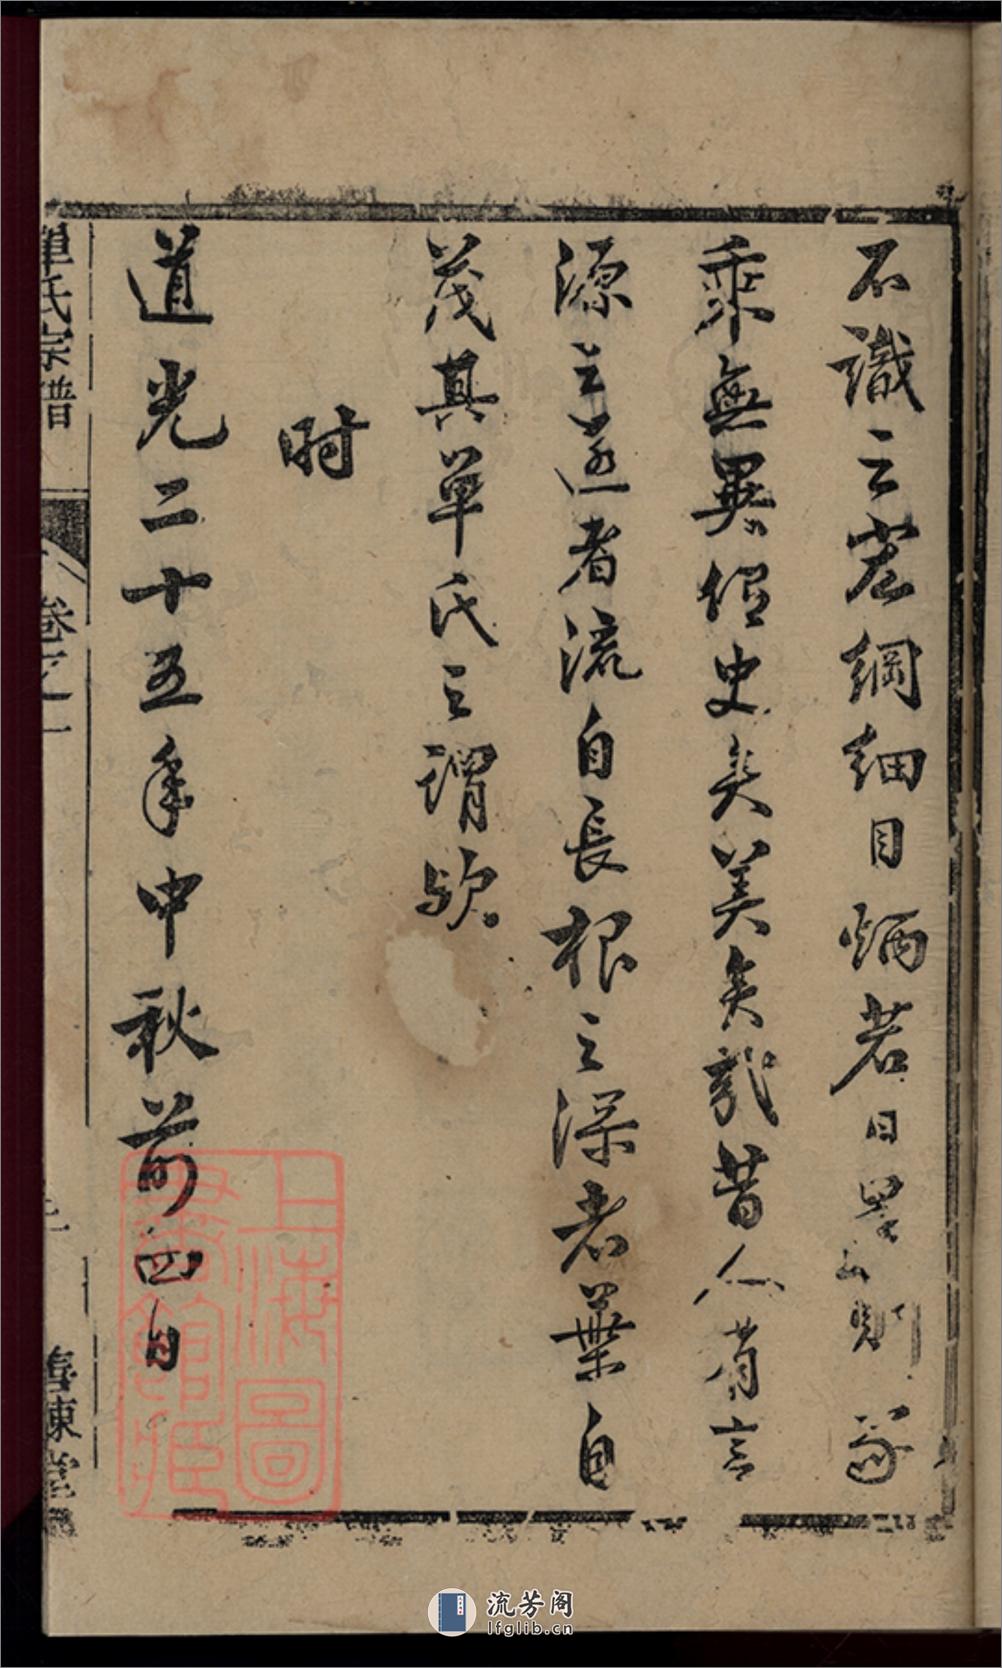 不識之宏綱細目炳若日星則家
乘無異信史矣美矣哉昔人有言
源之遠者流自長根之深者葉自
茂其單氏之謂歟
時
道光二十五年中秋前四日
單氏宗譜
卷之一
陳堂
上海圖書館藏
流芳阁
lfglib.cn